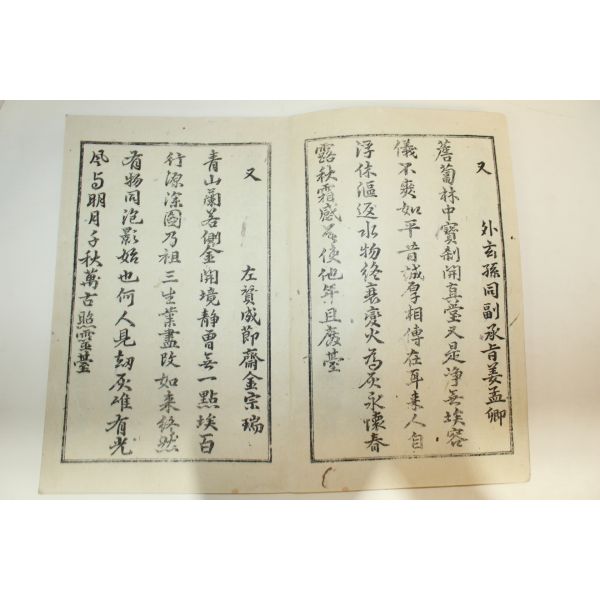 又
外玄孫同副承旨姜孟卿
薝蔔林中寶刹開真堂又是淨無埃容
儀不爽如平昔誠厚相傳在耳来人自
浮休漚返水物終衰變火為灰永懷春
露秋霜感莫使他年且廢臺
又
左贊成節齋金宗瑞
青山蘭若側金開境静曾無一點埃百
行源深國乃祖三生業盡改如来終然
有物同泡影始也何人見劫灰唯有光
風与明月千秋萬古照靈臺